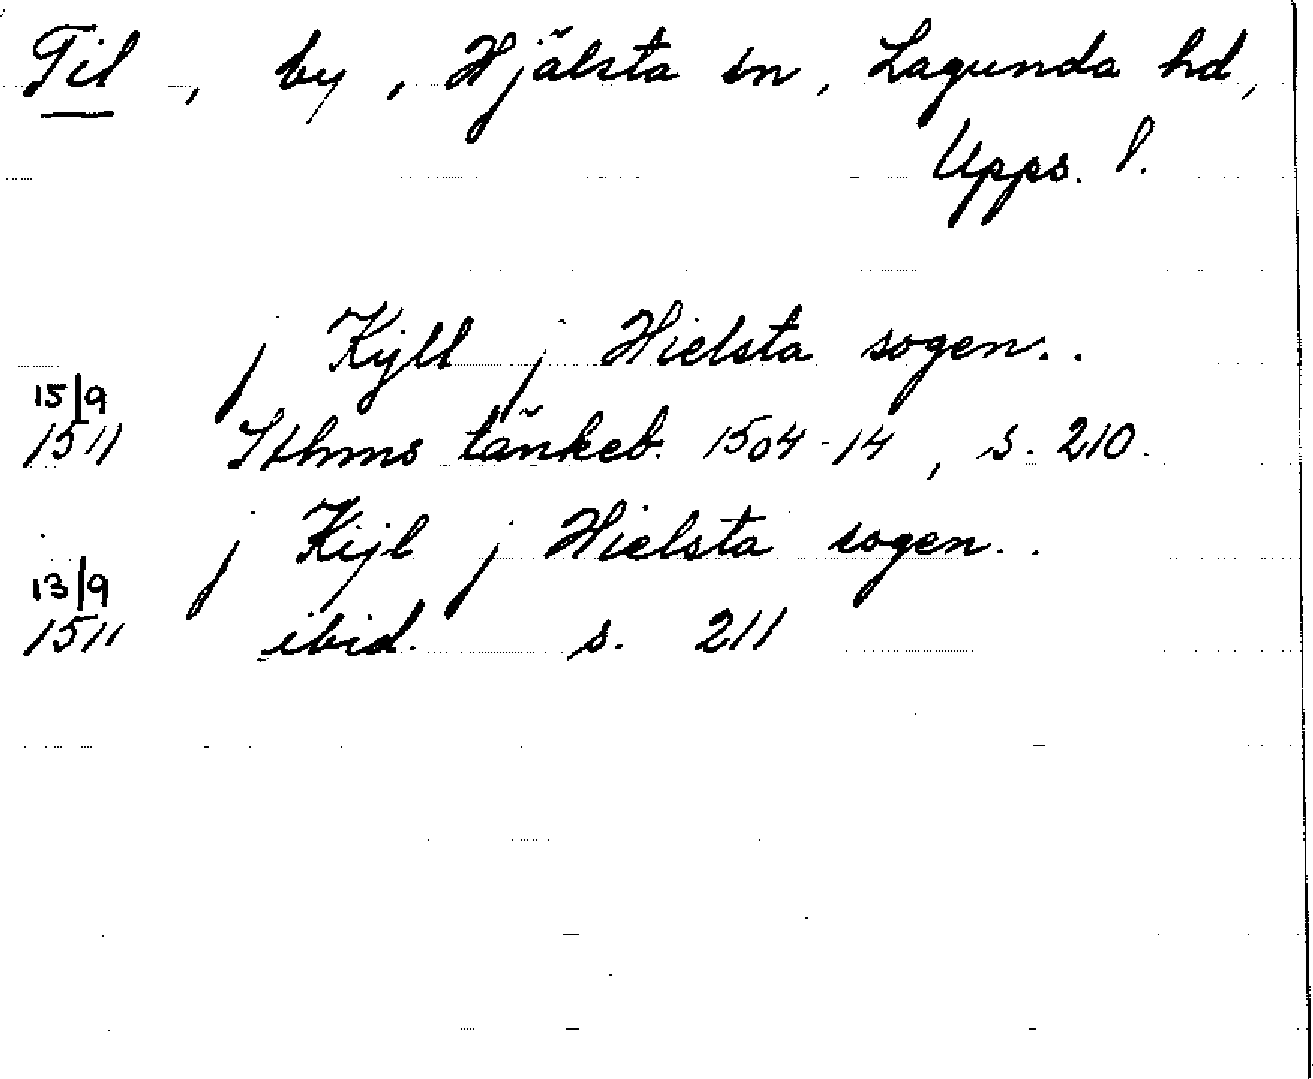 Til, by, Hjälsta sn, Lagunda hd,
Upps. l.
j Kijll j Hielsta sogen..
15/9
1511 Sthms tänkeb. 1504-14, s. 210.
j Kijl j Hielsta sogen..
13/9
1511 ibid. s. 211